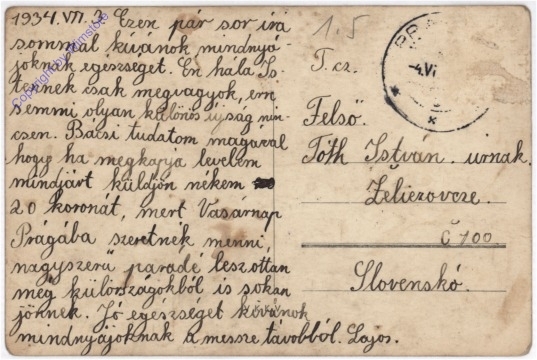 1934.VII.3 Ezen pár sor írá
sommal kívánok mindnyá-
jóknek egészséget. Én hála Is-
tennek csak megvagyok, erri
semmi olyan különös újság nin-
csen. Bácsi tudatom magával
hogy ha megkapja levelem
mindjárt küldjön nékem
20 koronát, mert Vasárnap
Prágába szeretnék menni,
nagyszerű parádé lesz ottan
még külországokból is sokan
jönnek. Jó egészséget kívánok
mindnyájoknak a messze távobból. Lajos.
Copyright by Filmstore
1.5
-4.VI
T. cz.
Felső.
Tóth István. úrnak.
Želiezovcze.
Č 700.
Slovenskó.